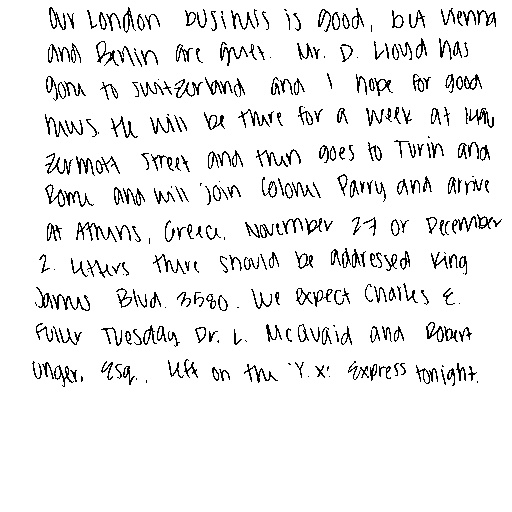 Our London business is good, but Vienna
and Berlin are quiet. Mr. D. Lloyd has
gone to Switzerland and I hope for good
news. He will be there for a week at 1496
Zermott Street and then goes to Turin and
Rome and will join Colonel Parry and arrive
at Athens, Greece, November 27 or December
2. Letters there should be addressed King
James Blvd. 3580. We expect Charles E.
Fuller Tuesday. Dr. L. McQuaid and Robert
Unger, Esq., left on the "Y.X." Express tonight.